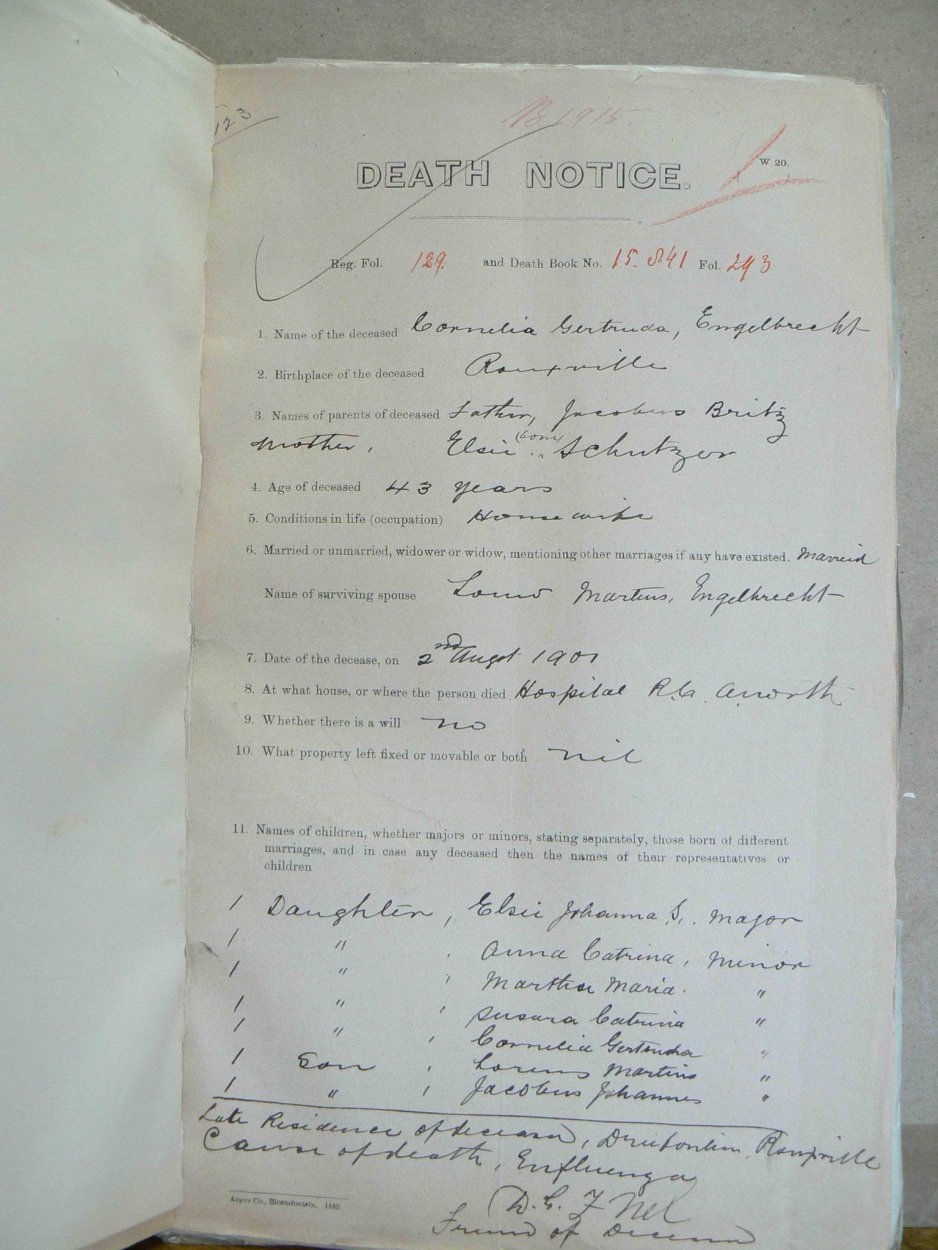 123
1915.
W 20.
DEATH NOTICE.
Reg. Fol. 129. and Death Book No. 15.841 Fol. 293
1. Name of the deceased Cornelia Gertruda, Engelbrecht
2. Birthplace of the deceased Rouxville
3. Names of parents of deceased Father, Jacobus Britz
Mother, Elsie (born) Schutzer
4. Age of deceased 43 years
5. Conditions in life (occupation) Housewife
6. Married or unmarried, widower or widow, mentioning other marriages if any have existed. Married
Name of surviving spouse Martins, Engelbrecht
7. Date of the decease, on 2nd Augst 1901
8. At what house, or where the person died Hospital R.C.
9. Whether there is a will no
10. What property left fixed or movable or both nil
11. Names of children, whether majors or minors, stating separately, those born of different
marriages, and in case any deceased then the names of their representatives or
children
1 Daughter, Elsie Johanna S. Major
1 " , Anna Catrina, Minor
1 " , Martha Maria. "
1 " , Susara Catrina "
1 " , Cornelia Gertruda "
1 Son , Lorens Martins "
1 " , Jacobus Johannes "
Late Residence of deceased, Rouxville
Cause of death, Enfluenza
D. G. F Nel
Friend of Deceased
Argus Co., Bloemfontein. 1448